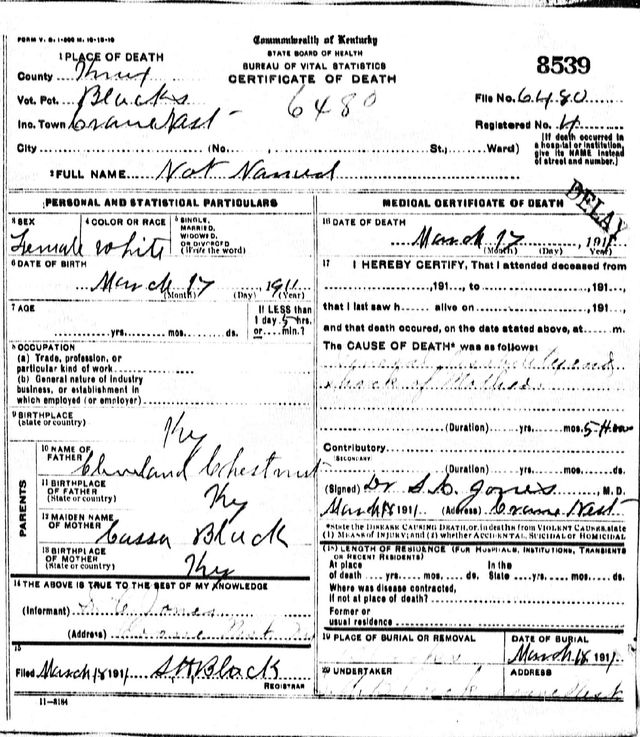 FORM V. S. 1-500 M. 10-15-10
Commonwealth of Kentucky
STATE BOARD OF HEALTH
BUREAU OF VITAL STATISTICS
CERTIFICATE OF DEATH
8539
1 PLACE OF DEATH
County Knox
Vot. Pct. Blacks
6480
File No. 6480
Inc. Town Crane Nest
Registered No. 4
City (No. , St.; Ward)
(If death occurred in a hospital or institution, give its NAME instead of street and number.)
2 FULL NAME Not Named
PERSONAL AND STATISTICAL PARTICULARS
3 SEX
Female
4 COLOR OR RACE
White
5 SINGLE, MARRIED, WIDOWED, OR DIVORCED (Write the word)
6 DATE OF BIRTH
March 17 1911
(Month) (Day) (Year)
7 AGE
yrs. mos. ds.
If LESS than
1 day 5 hrs.
or min.?
8 OCCUPATION
(a) Trade, profession, or
particular kind of work
(b) General nature of industry
business, or establishment in
which employed (or employer)
9 BIRTHPLACE
(State or country)
Ky
PARENTS
10 NAME OF FATHER
Cleveland Chestnut
11 BIRTHPLACE OF FATHER
(State or country)
Ky
12 MAIDEN NAME OF MOTHER
Cassa Black
13 BIRTHPLACE OF MOTHER
(State or country)
Ky
14 THE ABOVE IS TRUE TO THE BEST OF MY KNOWLEDGE
(Informant) S. C. Jones
(Address) Crane Nest
15
Filed March 18 1911 S.H. Black
REGISTRAR
11-8184
MEDICAL CERTIFICATE OF DEATH
DELAY
16 DATE OF DEATH
March 17 1911
(Month) (Day) (Year)
17 I HEREBY CERTIFY, That I attended deceased from
,191 , to ,191 ,
that I last saw h alive on ,191 ,
and that death occured, on the date stated above, at m.
The CAUSE OF DEATH* was as follows:
shock of Mother
(Duration) yrs. mos. 5 Hou
Contributory
SECONDARY
(Duration) yrs. mos. ds.
(Signed) Dr S. C. Jones, M. D.
March 18 1911 (Address) Crane Nest
*State the DISEASE CAUSING DEATH, or, in deaths from VIOLENT CAUSES, state
(1) MEANS OF INJURY; and (2) whether ACCIDENTAL, SUICIDAL or HOMICIDAL
(18) LENGTH OF RESIDENCE (FOR HOSPITALS, INSTITUTIONS, TRANSIENTS
OR RECENT RESIDENTS)
At place of death yrs. mos. ds. In the State yrs. mos. ds.
Where was disease contracted,
if not at place of death?
Former or
usual residence
19 PLACE OF BURIAL OR REMOVAL
DATE OF BURIAL
March 18 1911
20 UNDERTAKER
ADDRESS